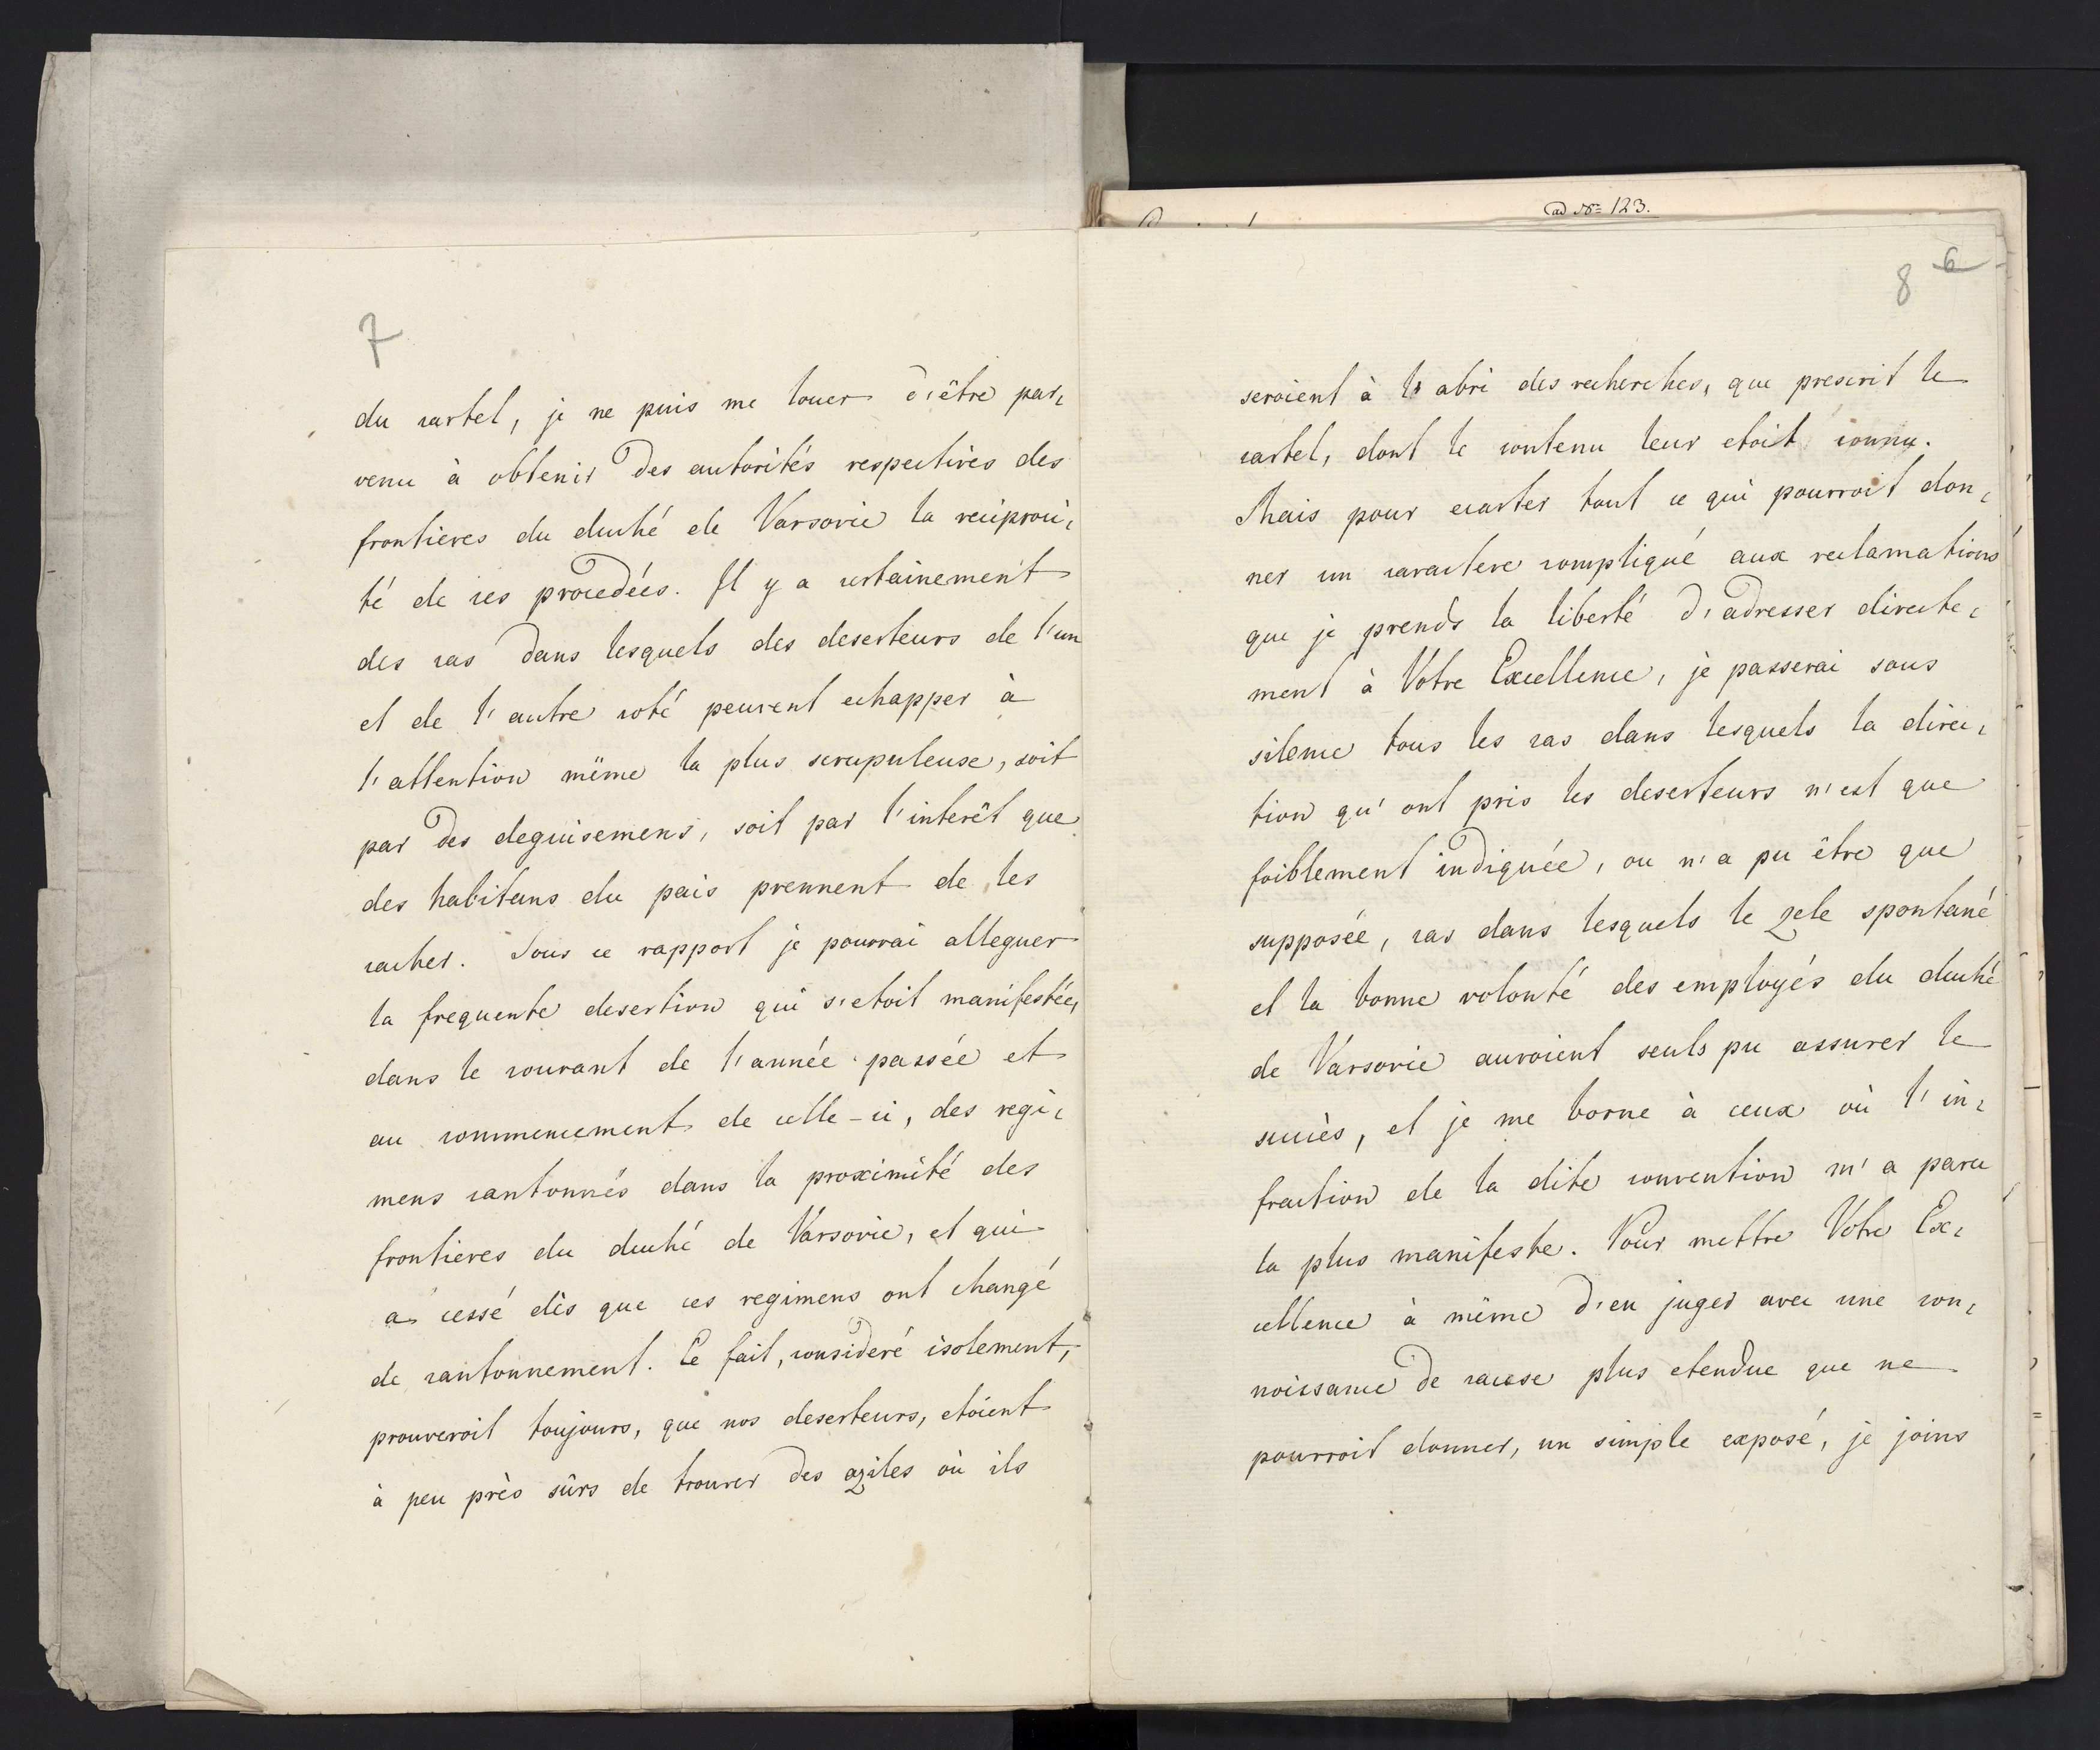 7
du cartel, je ne puis me louer d'être par,
venu à obtenir des autorités respectives des
frontieres du duché de Varsovie la reciproci,
té de ces procedées. Il y a certainement
des cas dans lesquels des deserteurs de l'un
et de l'autre coté peuvent echapper à
l'attention même la plus scrupuleuse, soit
par des deguisemens, soit par l'interêt que
des habitans du pais prennent de les
cacher. Sous ce rapport je pourrai alleguer
la frequente desertion qui s'etoit manifestée,
dans le courant de l'année passée et
au commencement de celle-ci, des regi,
mens cantonnés dans la proximité des
frontieres du duché de Varsovie, et qui
a cessé dès que ces regimens ont changé
de cantonnement. Ce fait, consideré isolement,
prouveroit toujours, que nos deserteurs, etoient
à peu près sûrs de trouver des aziles où ils
ad No 123.
8 6
seroient à l'abri des recherches, que prescrit le
cartel, dont le contenu leur etoit connu.
Mais pour ecarter tout ce qui pourroit don,
ner un caractere compliqué aux reclamations
que je prends la liberté d'adresser directe,
ment à Votre Excellence, je passerai sous
silence tous les cas dans lesquels la direc,
tion qu'ont pris les deserteurs n'est que
foiblement indiquée, ou n'a pu être que
supposée, cas dans lesquels le zele spontané
et la bonne volonté des employés du duché
de Varsovie auroient seuls pu assurer le
succès, et je me borne à ceux où l'in,
fraction de la dite convention m'a paru
la plus manifeste. Pour mettre Votre Ex,
cellence à même d'en juger avec une con,
noissance de cause plus etendue que ne
pourroit donner, un simple exposé, je joins